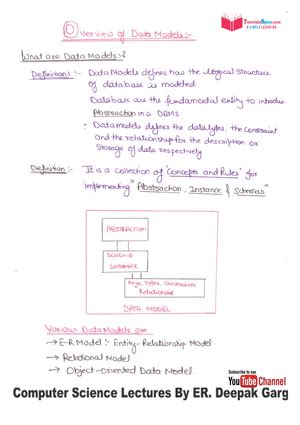 TutorialsSpace.com
Overview of Data Models:-
What are Data Models :-
Definitions:- Data Models defines how the Logical Structure
of database is modeled
Database are the fundamental entity to introduce
Abstraction in a DBMS
Data models defines the data types, the constraint
and the relationship for the description or
storage of data respectively
Definition:- It is a collection of "Concepts and Rules" for
implementing "Abstraction, Instance & Schemas"
ABSTRACTION
SCHEMA
INSTANCE
Keys, Types, Constraints
Relationship
DATA MODEL
Various Data Models are
→ E-R Model :- Entity-Relationship Model
→ Relational Model
→ Object-oriented Data Model.
Subscribe to our
YouTube Channel
Computer Science Lectures By ER. Deepak Garg